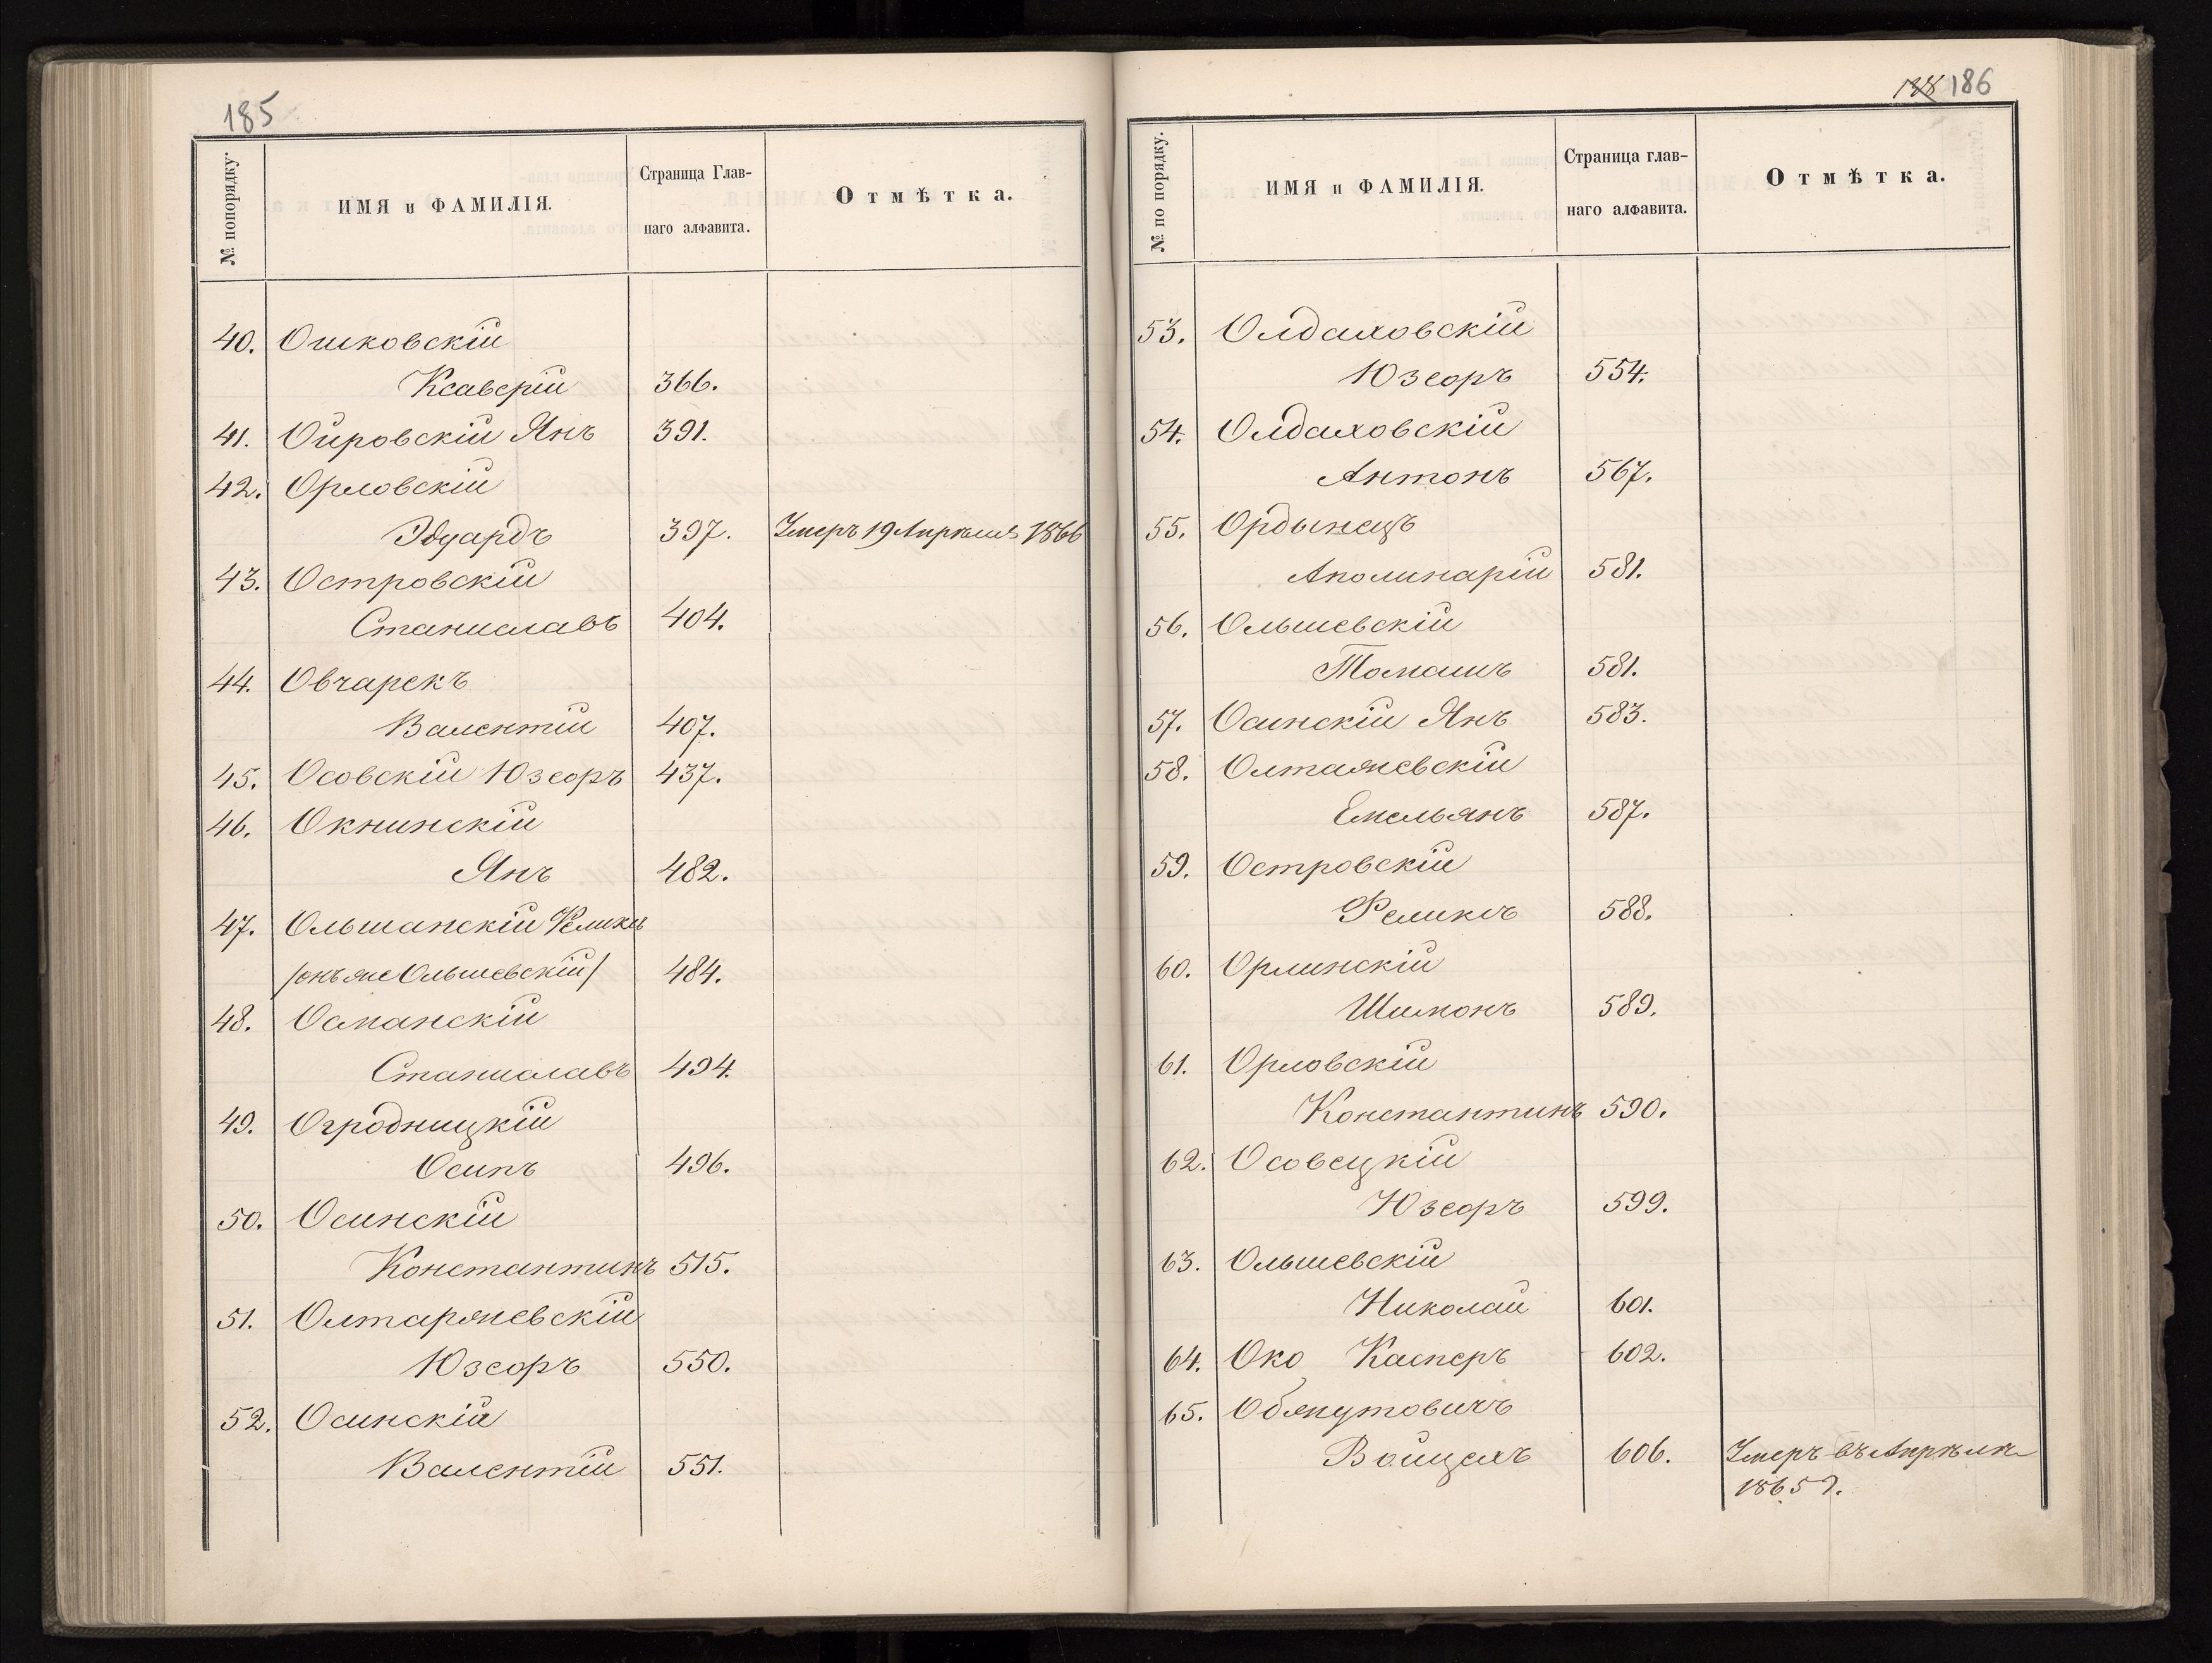 185
№ попорядку.
ИМЯ и ФАМИЛІЯ.
Страница Глав-
наго алфавита.
Отмѣтка.
40. Ошковскій
Ксаверій 366.
41. Ойровскій Янъ 391.
42. Орловскій
Эдуардъ 397. Умеръ 19 Апрѣля 1866
43. Островскій
Станиславъ 404.
44. Овчарекъ
Валентій 407.
45. Осовскій Юзефъ 437.
46. Окнинскій
Янъ 482.
47. Ольшанскій Феликсъ
/онъ же Ольшевскій/ 484.
48. Османскій
Станиславъ 494.
49. Огродницкій
Осипъ 496.
50. Осинскій
Константинъ 515.
51. Олтаржевскій
Юзефъ 550.
52. Осинскій
Валентій 551.
188 186
№ по порядку.
ИМЯ и ФАМИЛІЯ.
Страница глав-
наго алфавита.
Отмѣтка.
53. Олдаховскій
Юзефъ 554.
54. Олдаховскій
Антонъ 567.
55. Ордынецъ
Аполинарій 581.
56. Ольшевскій
Томашъ 581.
57. Осинскій Янъ 583.
58. Олтажевскій
Емельянъ 587.
59. Островскій
Феликсъ 588.
60. Орлинскій
Шимонъ 589.
61. Орловскій
Константинъ 590.
62. Осовецкій
Юзефъ 599.
63. Ольшевскій
Николай 601.
64. Око Касперъ 602.
65. Обякутовичъ
Войцехъ 606. Умеръ въ Апрѣлѣ
1865 г.